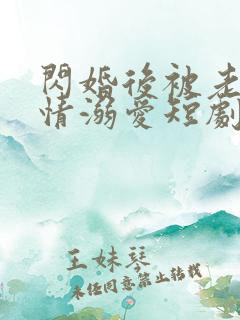 閃婚後被老
情溺愛短劇
王妹琴
未经同意禁止转载